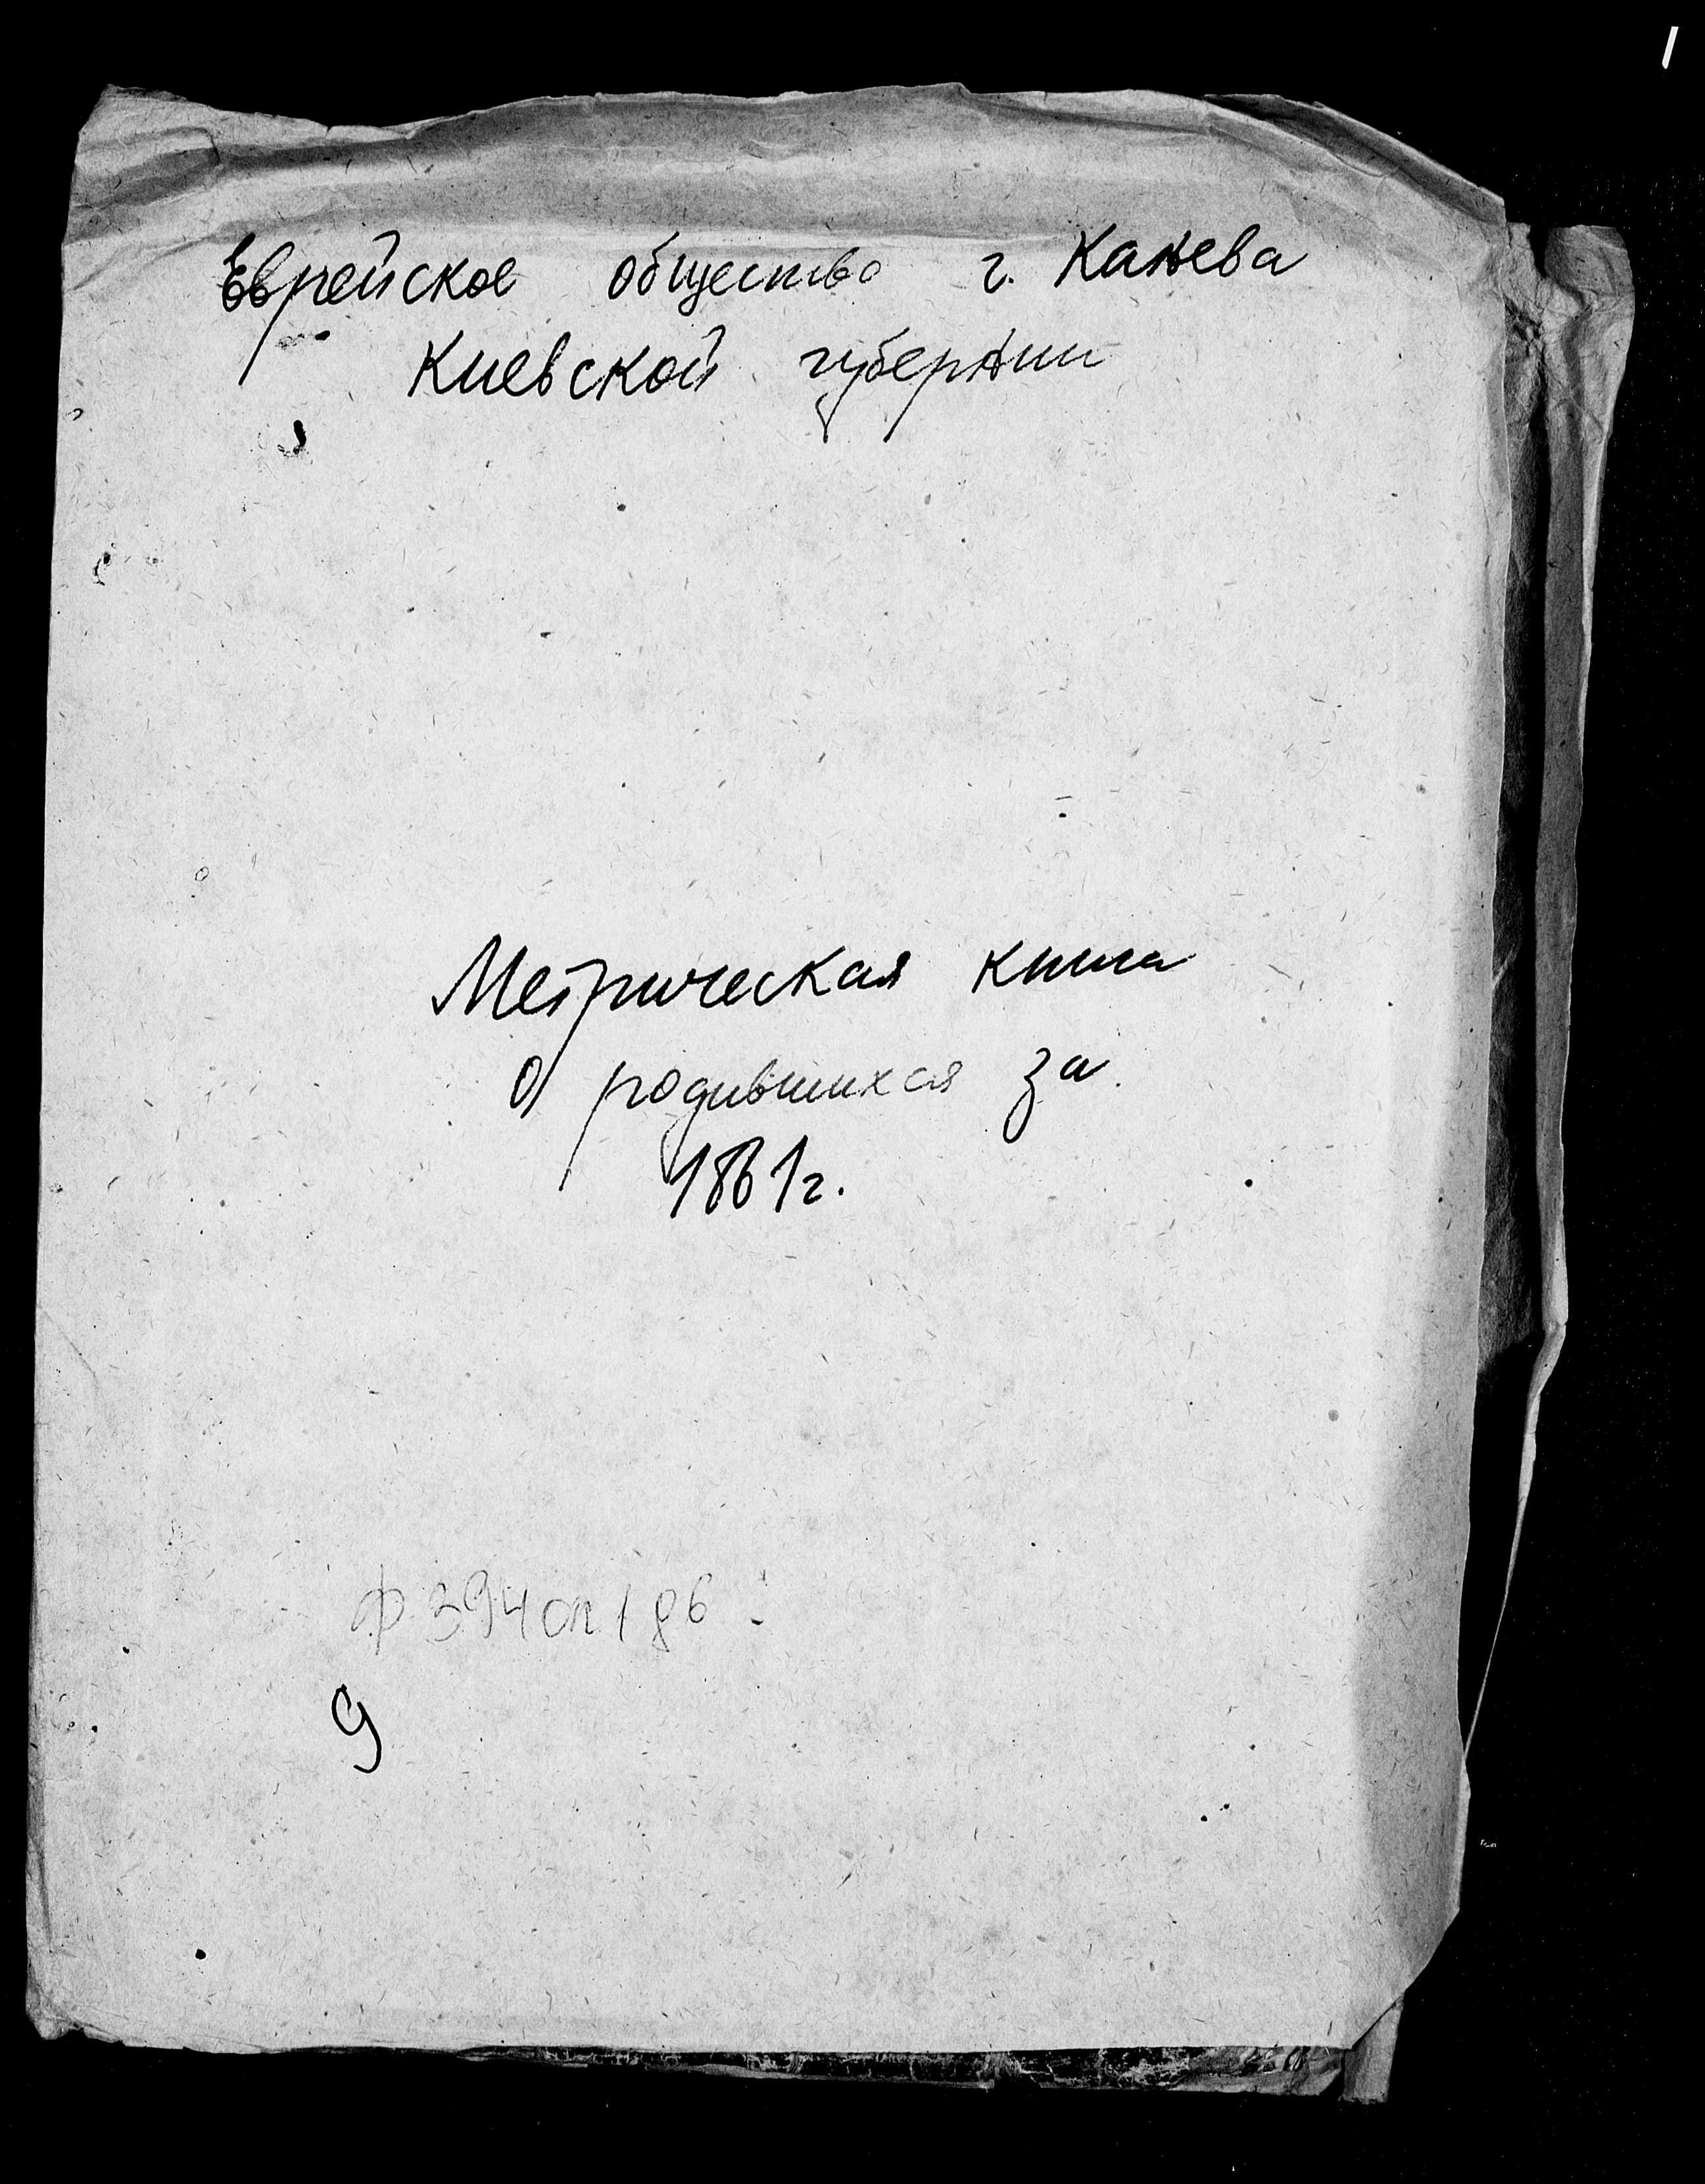 Еврейское общество г. Канева
Киевской губернии
Метрическая книга
о родившихся за
1861г.
Ф 394 оп 1 86
9